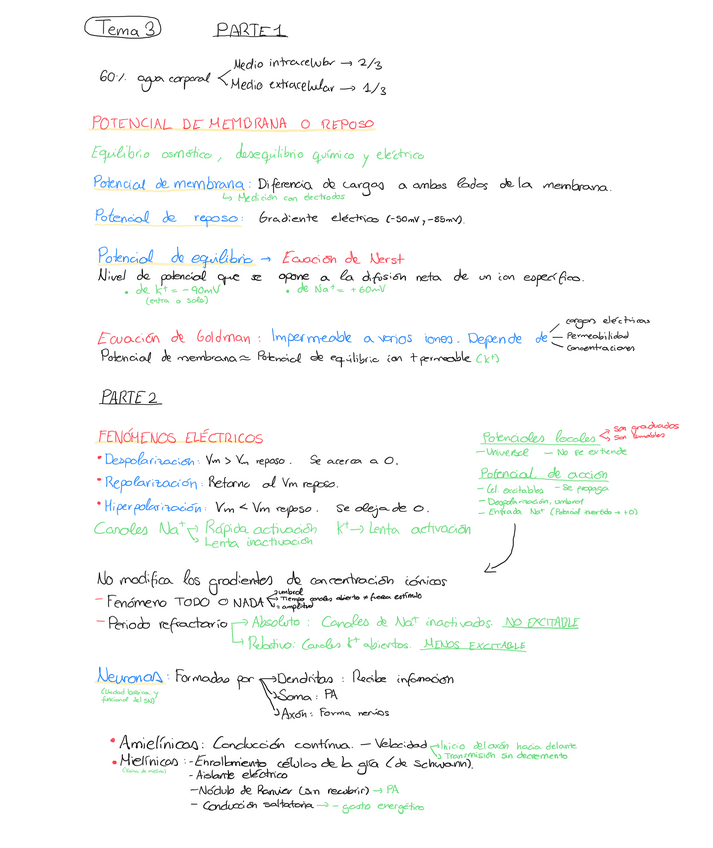 Tema 3 PARTE 1
60% agua corporal
Medio intracelular → 2/3
Medio extracelular → 1/3
POTENCIAL DE MEMBRANA O REPOSO
Equilibrio osmótico, desequilibrio químico y eléctrico
Potencial de membrana: Diferencia de cargas a ambos lados de la membrana.
↳ Medición con electrodos
Potencial de reposo: Gradiente eléctrico (-50mV, -85mV).
Potencial de equilibrio → Ecuación de Nerst
Nivel de potencial que se opone a la difusión neta de un ion específico.
• de K+ = -90mV • de Na+ = +60mV
(entra o sale)
Ecuación de Goldman: Impermeable a varios iones. Depende de
cargas eléctricas
Permeabilidad
Concentraciones
Potencial de membrana ≈ Potencial de equilibrio ion + permeable (K+)
PARTE 2
FENÓMENOS ELÉCTRICOS
• Despolarización: Vm > Vm reposo. Se acerca a 0.
• Repolarización: Retorno al Vm reposo.
• Hiperpolarización: Vm < Vm reposo. Se aleja de 0.
Canales Na+ → Rápida activación K+ → Lenta activación
↳ Lenta inactivación
Potenciales locales
Son graduados
Son sumables
- Universal - No se extiende
Potencial de acción
- Cél. excitables - Se propaga
- Despolarización, umbral
- Entrada Na+ (Potencial invertido → +0)
No modifica los gradientes de concentración iónicos
- Fenómeno TODO O NADA
umbral
Tiempo canales abierto ≠ fuerza estímulo
= amplitud
- Periodo refractario → Absoluto: Canales de Na+ inactivados. NO EXCITABLE
↳ Relativo: Canales K+ abiertos. MENOS EXCITABLE
Neuronas: Formadas por → Dendritas: Recibe información
(Unidad básica y funcional del SN)
Soma: PA
Axón: Forma nervios
• Amielínicas: Conducción contínua. - Velocidad → Inicio del axón hacia delante
Transmisión sin decremento
• Mielínicas: - Enrollamiento células de la glía (de Schwann).
(Vaina de mielina)
- Aislante eléctrico
- Nódulo de Ranvier (sin recubrir) → PA
- Conducción saltatoria → - gasto energético